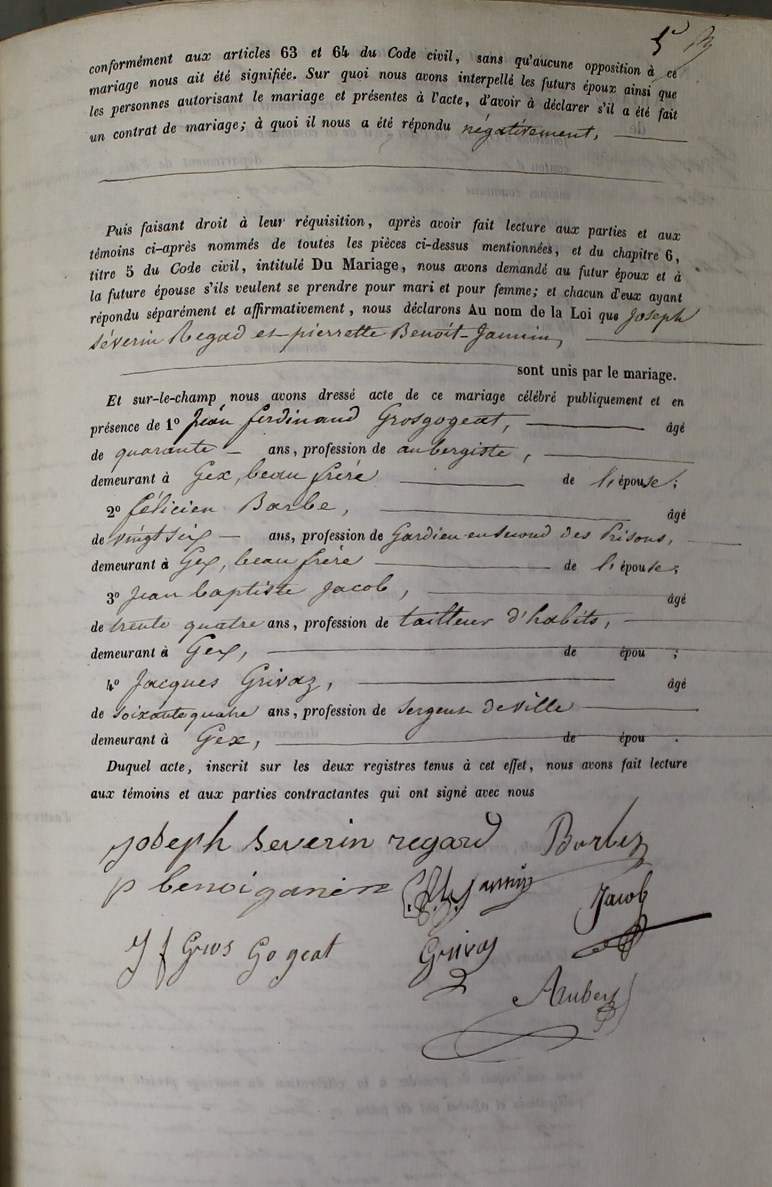 5
conformément aux articles 63 et 64 du Code civil, sans qu'aucune opposition à ce
mariage nous ait été signifiée. Sur quoi nous avons interpellé les futurs époux ainsi que
les personnes autorisant le mariage et présentes à l'acte, d'avoir à déclarer s'il a été fait
un contrat de mariage; à quoi il nous a été répondu négativement,
Puis faisant droit à leur réquisition, après avoir fait lecture aux parties et aux
témoins ci-après nommés de toutes les pièces ci-dessus mentionnées, et du chapitre 6,
titre 5 du Code civil, intitulé Du Mariage, nous avons demandé au futur époux et à
la future épouse s'ils veulent se prendre pour mari et pour femme; et chacun d'eux ayant
répondu séparément et affirmativement, nous déclarons Au nom de la Loi que Joseph
séverin Regad et pierrette Benoît-Jannin,
sont unis par le mariage.
Et sur-le-champ nous avons dressé acte de ce mariage célébré publiquement et en
présence de 1° Jean ferdinand Grosgogeat, âgé
de quarante ans, profession de aubergiste,
demeurant à Gex, beau frère de l'épouse;
2° félicien Barbe, âgé
de vingt six ans, profession de Gardien en second des Prisons,
demeurant à Gex, beau frère de l'épouse;
3° Jean baptiste Jacob, âgé
de trente quatre ans, profession de tailleur d'habits,
demeurant à Gex, de épou ;
4° Jacques Grivaz, âgé
de soixante quatre ans, profession de Sergent de ville
demeurant à Gex, de épou .
Duquel acte, inscrit sur les deux registres tenus à cet effet, nous avons fait lecture
aux témoins et aux parties contractantes qui ont signé avec nous
joseph severin regard Barbez
p benoiganin Jannin Jacob
J f Gros Gogeat Grivaz